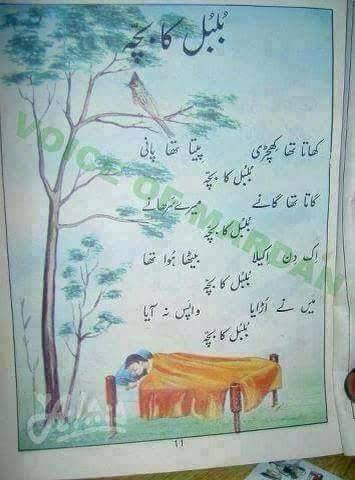 بُلبُل کا بچّہ
کھاتا تھا کھچڑی پیتا تھا پانی
بُلبُل کا بچّہ
گاتا تھا گانے میرے سرھانے
بُلبُل کا بچّہ
اِک دن اکیلا بیٹھا ہوا تھا
بُلبُل کا بچّہ
میں نے اُڑایا واپس نہ آیا
بُلبُل کا بچّہ
VOICE OF MARDAN
11